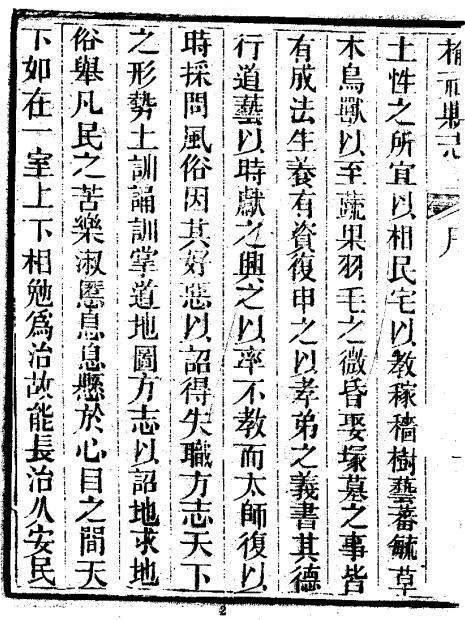 縣志
土性之所宜以相民宅以教稼穡樹藝蕃毓草
木鳥獸以至蔬果羽毛之微昏娶塚墓之事皆
有成法生養有資復申之以孝弟之義書其德
行道藝以時獻之興之以率不教而太師復以
時採問風俗因其好惡以詔得失職方志天下
之形勢土訓誦訓掌道地圖方志以詔地求地
俗舉凡民之苦樂淑慝息息懸於心目之間天
下如在一室上下相勉爲治故能長治久安民
2